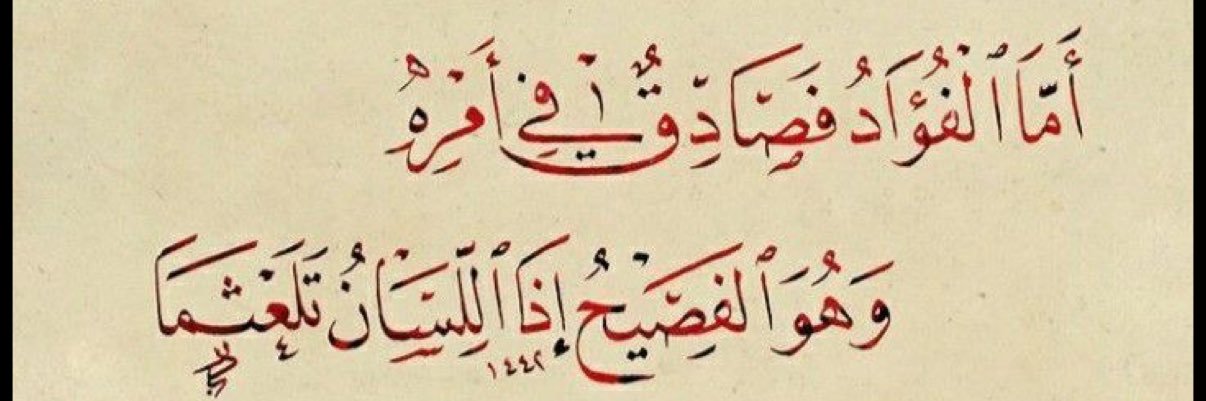 أَمَّا ٱلْفُؤَادُ فَصَادِقٌ فِي أَمْرِهِ
وَهُوَ ٱلْفَصِيْحُ إِذَا ٱللِّسَانُ تَلَعْثَمَا
١٤٤٢